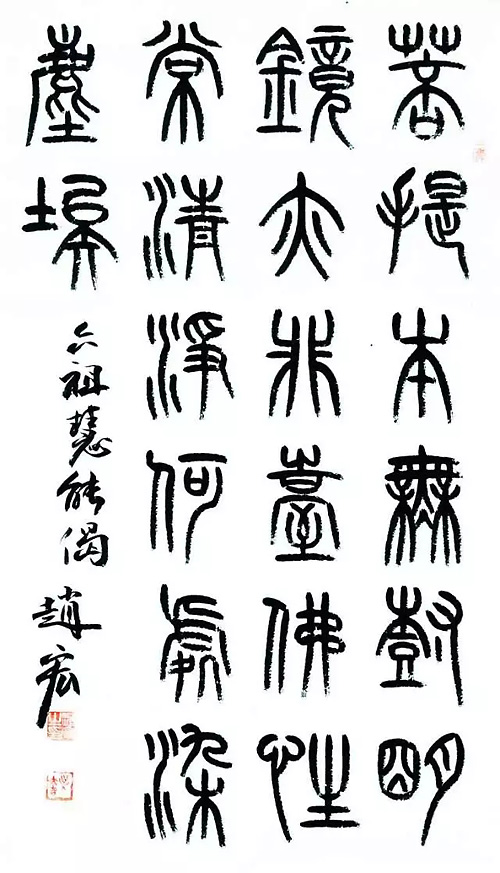 菩提本無樹明
鏡亦非臺佛性
常清淨何處染
塵埃
六祖慧能偈 趙宏